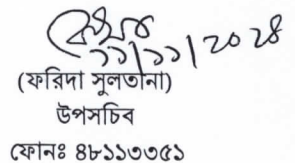 ১১/১১/২০২৪
(ফরিদা সুলতানা)
উপসচিব
ফোনঃ ৪৮১১৩৩৫১